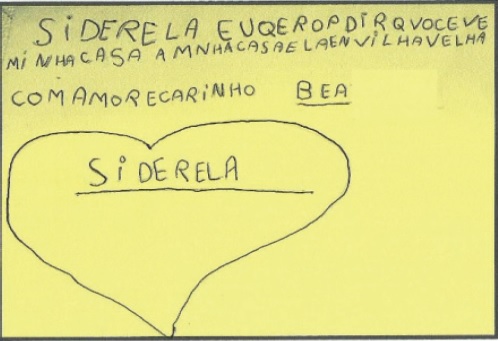 SiDERELA EUQEROPDIRQVOCEVE
MiNHACASA AMNHACASAELAENViLHAVELHA
COMAMORECARiNHO BEA
SiDERELA